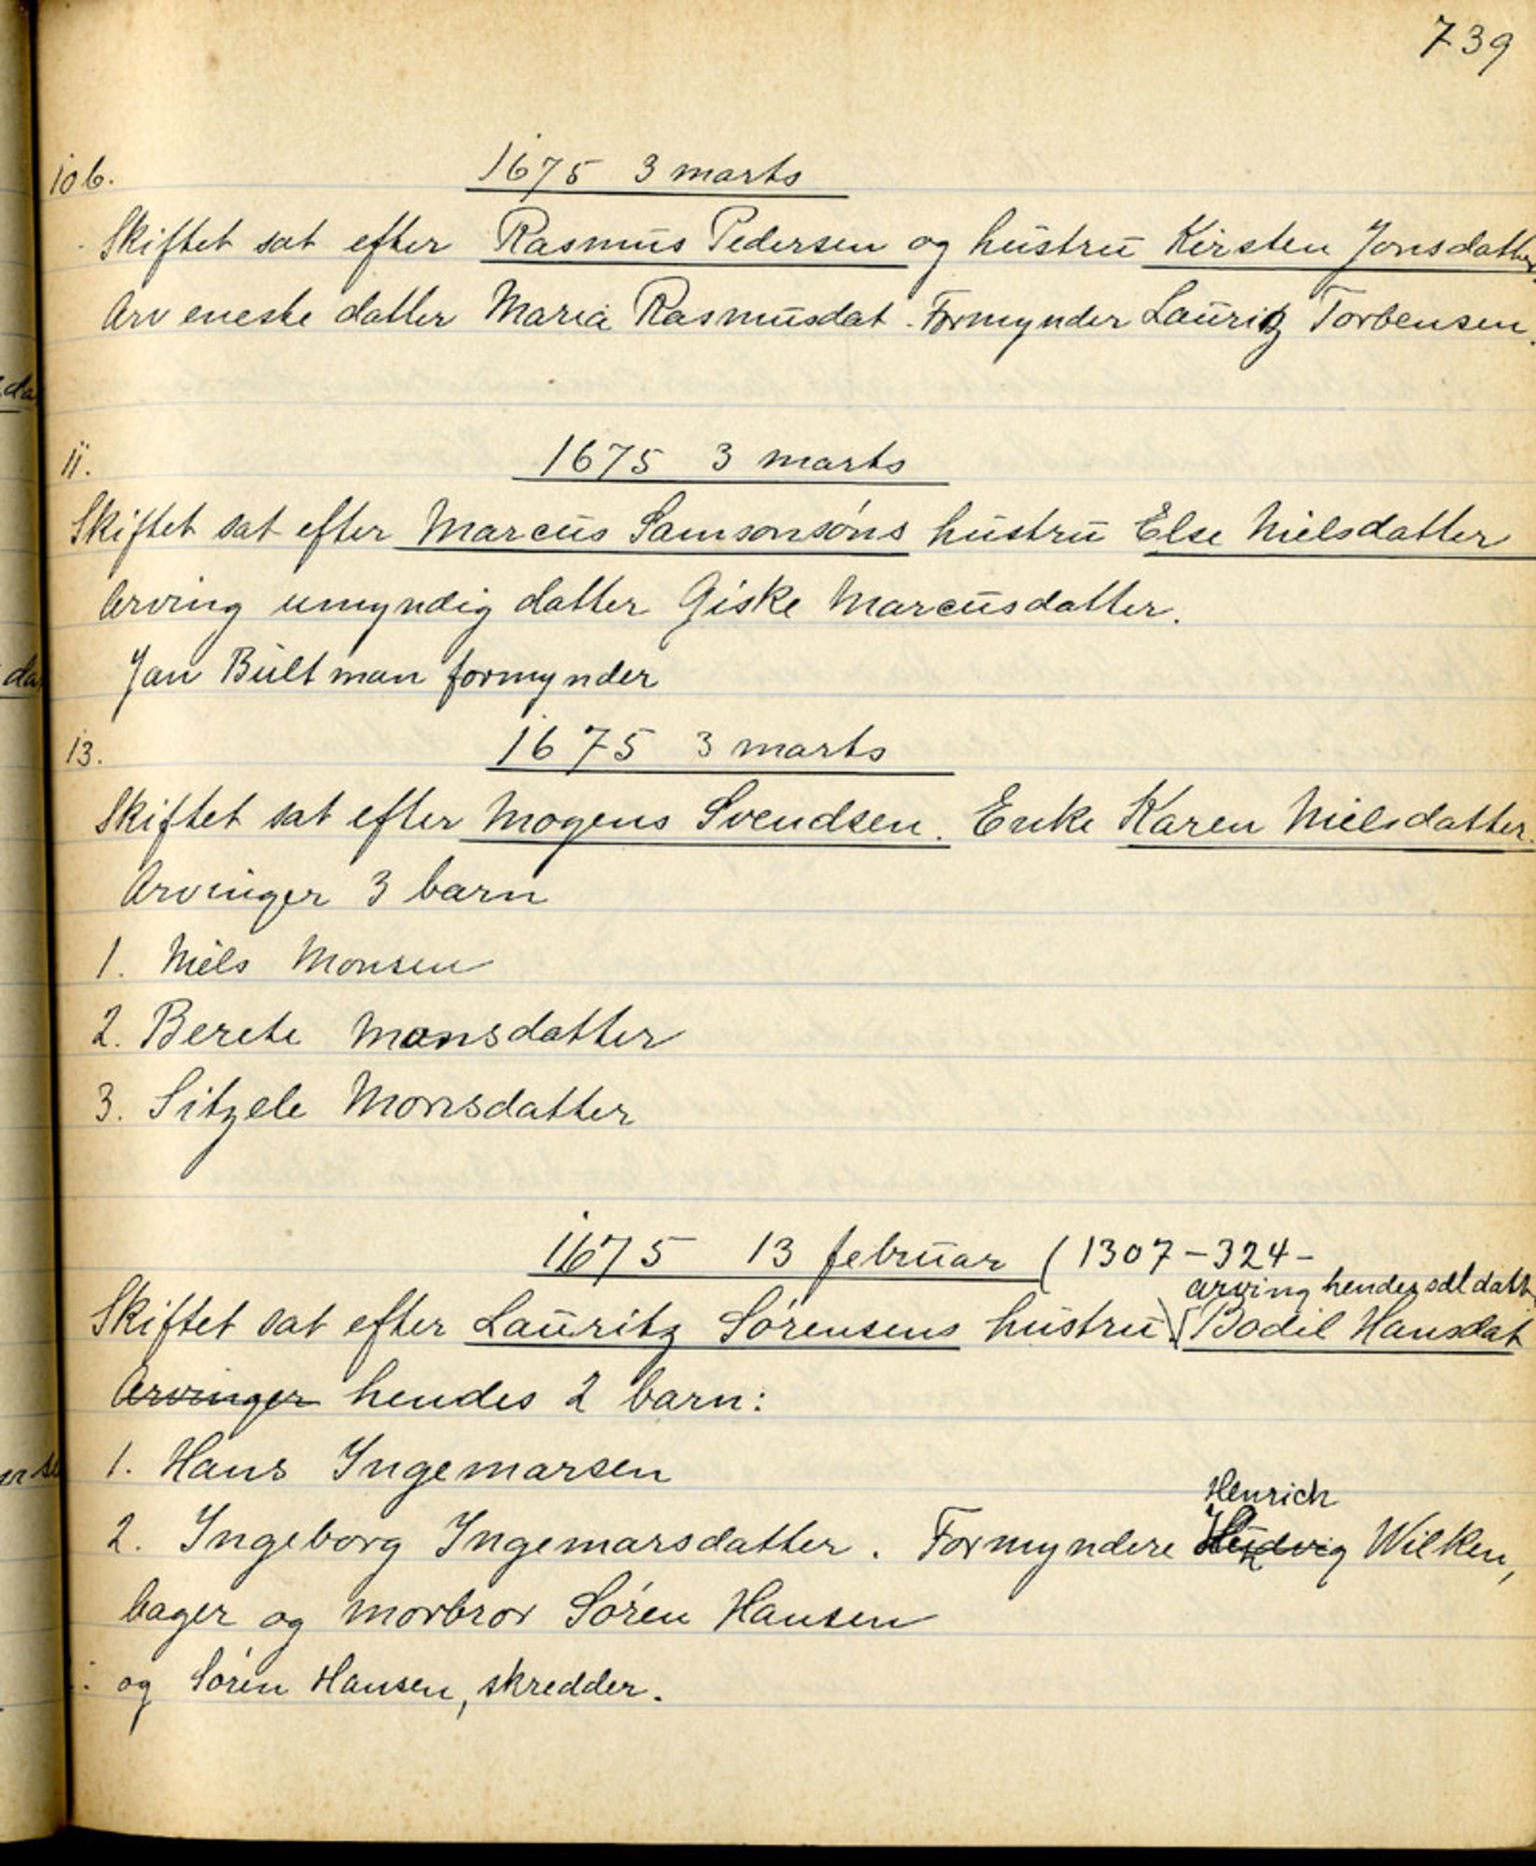 739
10b. 1675 3 marts
Skiftet sat efter Rasmus Pedersen og hustru Kirsten Jonsdatter.
Arv eneste datter Maria Rasmusdat. Formynder Lauritz Torbensen.
11. 1675 3 marts
Skiftet sat efter Marcus Samsonsøns hustru Else Nielsdatter
Arving umyndig datter Giske Marcusdatter.
Jan Bültman formynder
13. 1675 3 marts
Skiftet sat efter Mogens Svendsen. Enke Karen Nielsdatter.
Arvinger 3 barn
1. Niels Monsen
2. Berete Monsdatter
3. Sitzele Monsdatter
1675 13 februar (1307-324-
arving hendes sdl datt.
Skiftet sat efter Lauritz Sørensens hustru Bodil Hansdat
Arvinger hendes 2 barn:
1. Hans Ingemarsen
2. Ingeborg Ingemarsdatter. Formyndere Henrich Wilken,
bager og morbror Søren Hansen
og Søren Hansen, skredder.